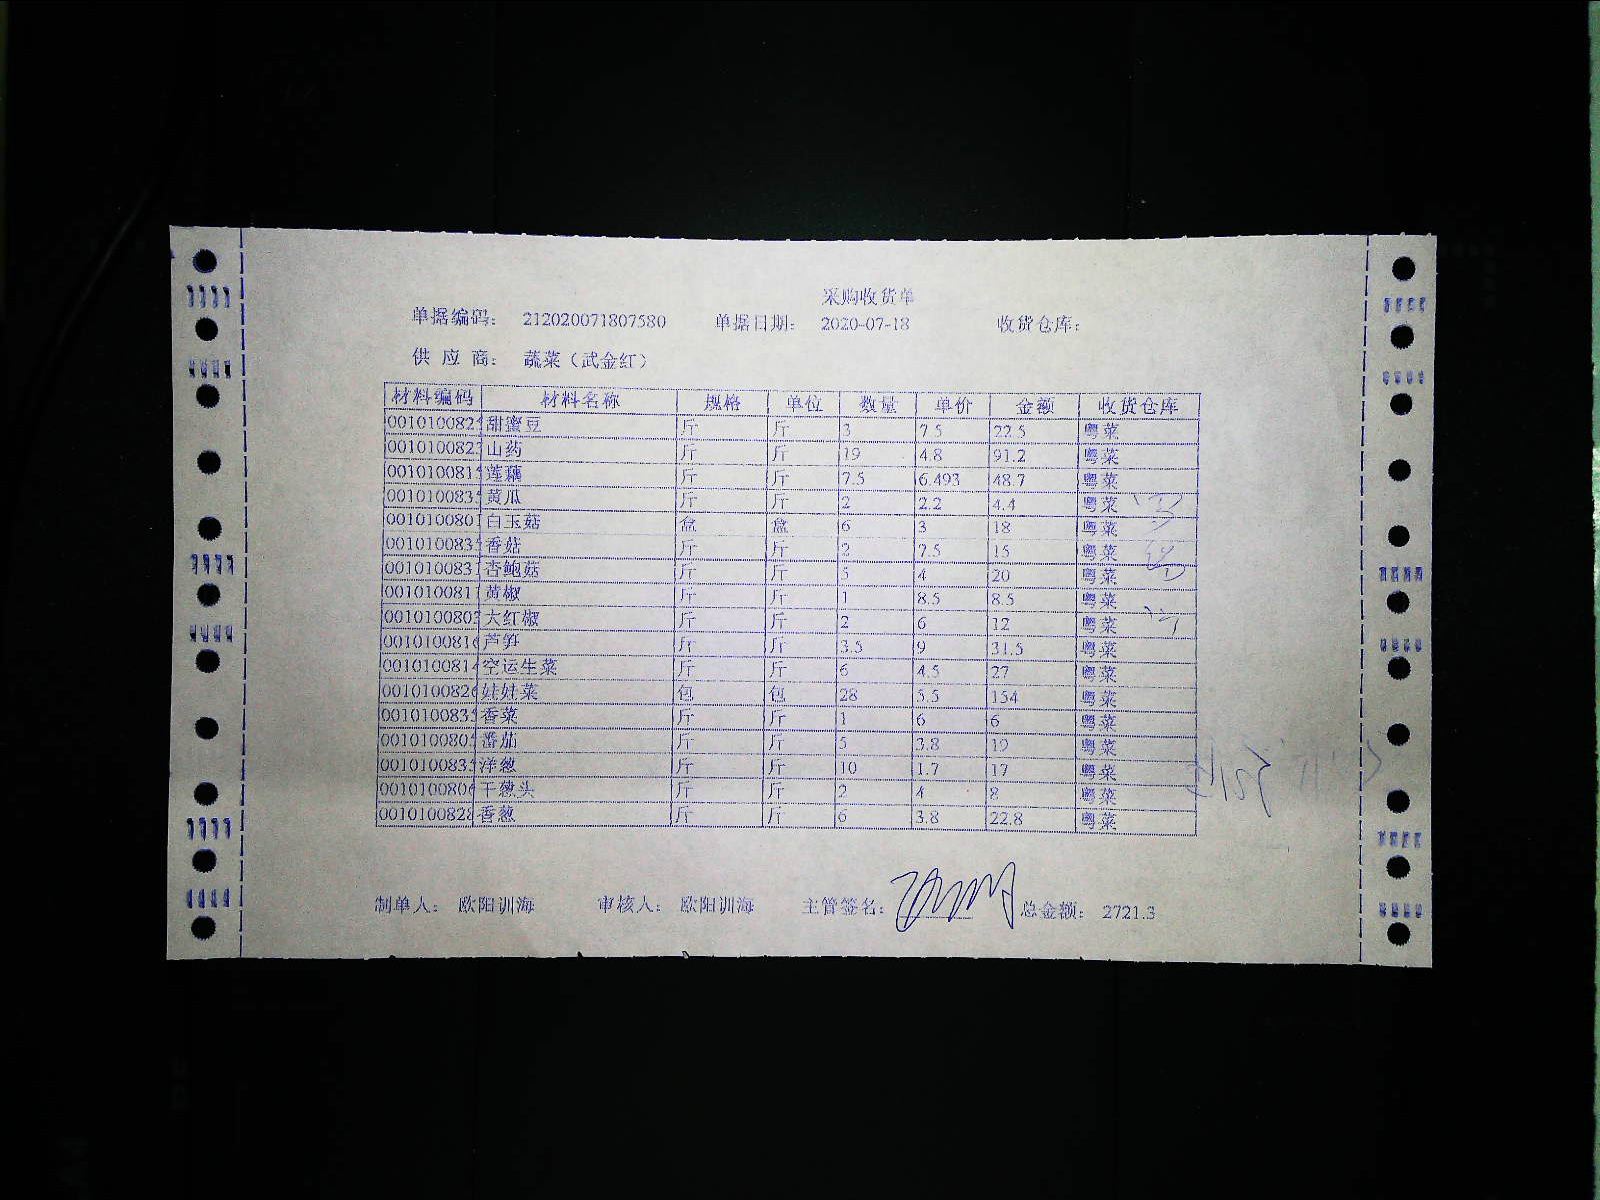 采购收货单
单据编码： 212020071807580 单据日期： 2020-07-18 收货仓库：
供 应 商： 蔬菜（武金红）
材料编码 材料名称 规格 单位 数量 单价 金额 收货仓库
001010082 甜蜜豆 斤 斤 3 7.5 22.5 粤菜
001010082 山药 斤 斤 19 4.8 91.2 粤菜
001010081 莲藕 斤 斤 7.5 6.493 48.7 粤菜
001010083 黄瓜 斤 斤 2 2.2 4.4 粤菜
001010080 白玉菇 盒 盒 6 3 18 粤菜
001010083 香菇 斤 斤 2 7.5 15 粤菜
001010083 杏鲍菇 斤 斤 5 4 20 粤菜
001010081 黄椒 斤 斤 1 8.5 8.5 粤菜
001010080 大红椒 斤 斤 2 6 12 粤菜
001010081 芦笋 斤 斤 3.5 9 31.5 粤菜
001010081 空运生菜 斤 斤 6 4.5 27 粤菜
001010082 娃娃菜 包 包 28 5.5 154 粤菜
001010083 香菜 斤 斤 1 6 6 粤菜
001010080 番茄 斤 斤 5 3.8 19 粤菜
001010083 洋葱 斤 斤 10 1.7 17 粤菜
001010080 干葱头 斤 斤 2 4 8 粤菜
001010082 香葱 斤 斤 6 3.8 22.8 粤菜
制单人： 欧阳训海 审核人： 欧阳训海 主管签名： 总金额： 2721.3